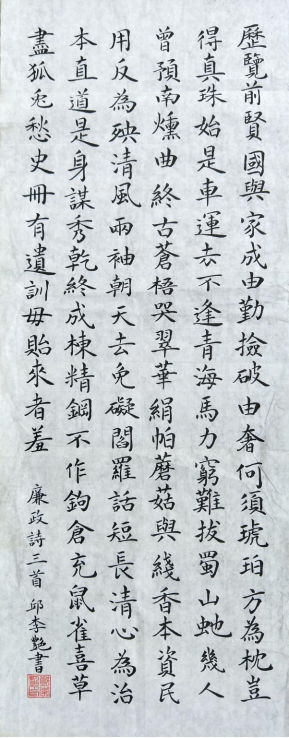 歷覽前賢國與家成由勤撿破由奢何須琥珀方為枕豈
得真珠始是車運去不逢青海馬力窮難拔蜀山虵幾人
曾預南燻曲終古蒼梧哭翠華絹帕蘑菇與綫香本資民
用反為殃清風兩袖朝天去免礙閻羅話短長清心為治
本直道是身謀秀乾終成棟精鋼不作鉤倉充鼠雀喜草
盡狐兔愁史冊有遺訓毋貽來者羞
廉政詩三首 邱李艷書